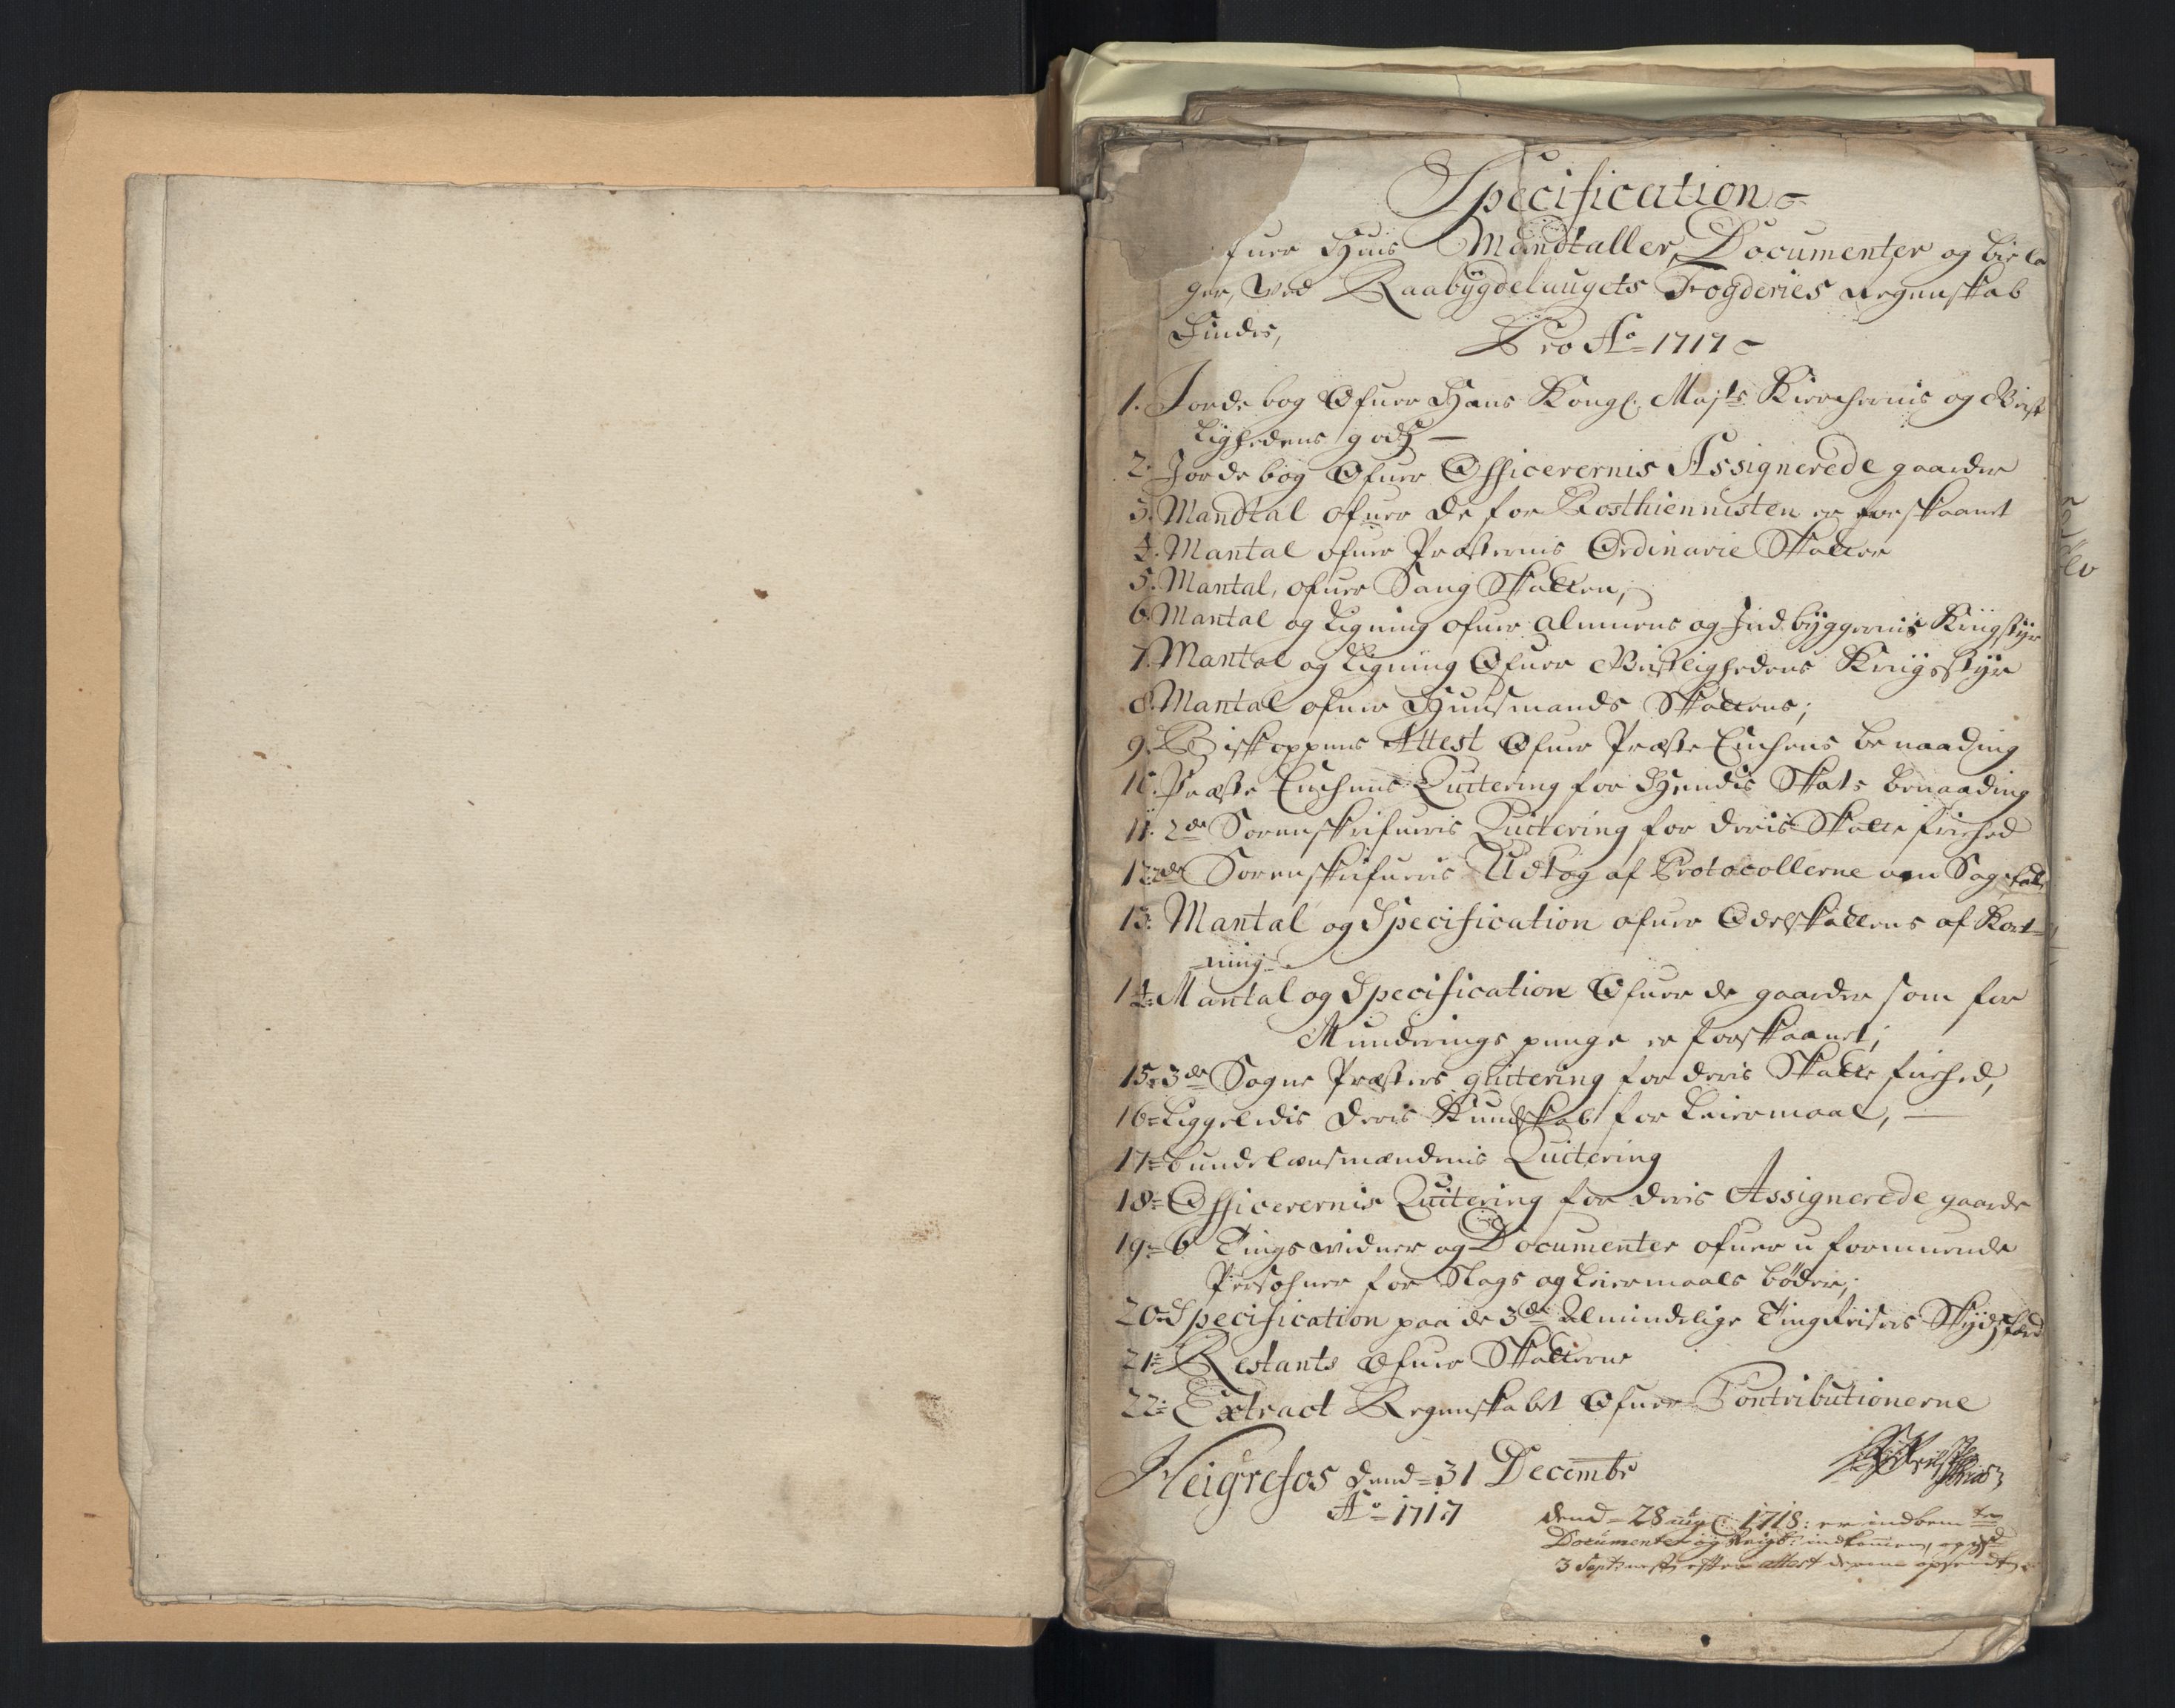 Specification
fuer Huis Mandtaller, Documenter og bie la
ger, Ved Raabÿgdelaugets Fogderies Regenskab
Findes,
Pro Ao 1717
1. Jordebog Ofuer Hans Kongl. Majts Kierchernis og Geist
lighedens godtz
2. Jordebog Ofuer Officerernis Assignerede gaarder
3. Mandtal ofuer de for Rosthiennisten er forskaanet
4. Mantal ofuer Præsternis Ordinarie Skatter
5. Mantal, ofuer Skatten,
6 Mantal og Ligning ofuer almuens og Indbÿggernis Kriigstÿr
7. Mantal og Ligning Ofuer Geistlighedens Kriigsstÿr
8. Mantal ofuer Huusmands Skattens;
9. Biskoppens Attest Ofuer Præste Enchens benaading
10. Præste Enchens Quitering for Hendis Skats benaading
11. 2de Sorenskrifueris Quitering for deris Skatte friehed
12. 2de Sorenskrifueris Udtog af Protocollerne om Sagefald
13. Mantal og Specification ofuer Odelskattens af Kort=
=ning
14. Mantal og Specification Ofuer de gaarder som for
Munderings penge er forskaanet;
15. 3de Sogne Præsters quitering for deris Skatte friehed,
16= Liggeledis deris Kundskab for Leiermaal,
17= bundelænsmændenis Quitering
18= Officerernis Quitering for deris Assignerede gaarde
19= 6 Tingsvidner og Documenter ofuer uformuende
Persohner for Slags og Leiermaals bøder;
20= Specification paa de 3de Almindelige Tingreisers Skÿdsfærd
21= Restants Ofuer Skatterne
22= Extract Regenskabet Ofuer Contributionerne
Heigrefos dend= 31 Decembr
Ao= 1717
dend= 28 aug: 1718: er indbem te
Documenter og indkommen, og
3 Septr nest efter attest derom